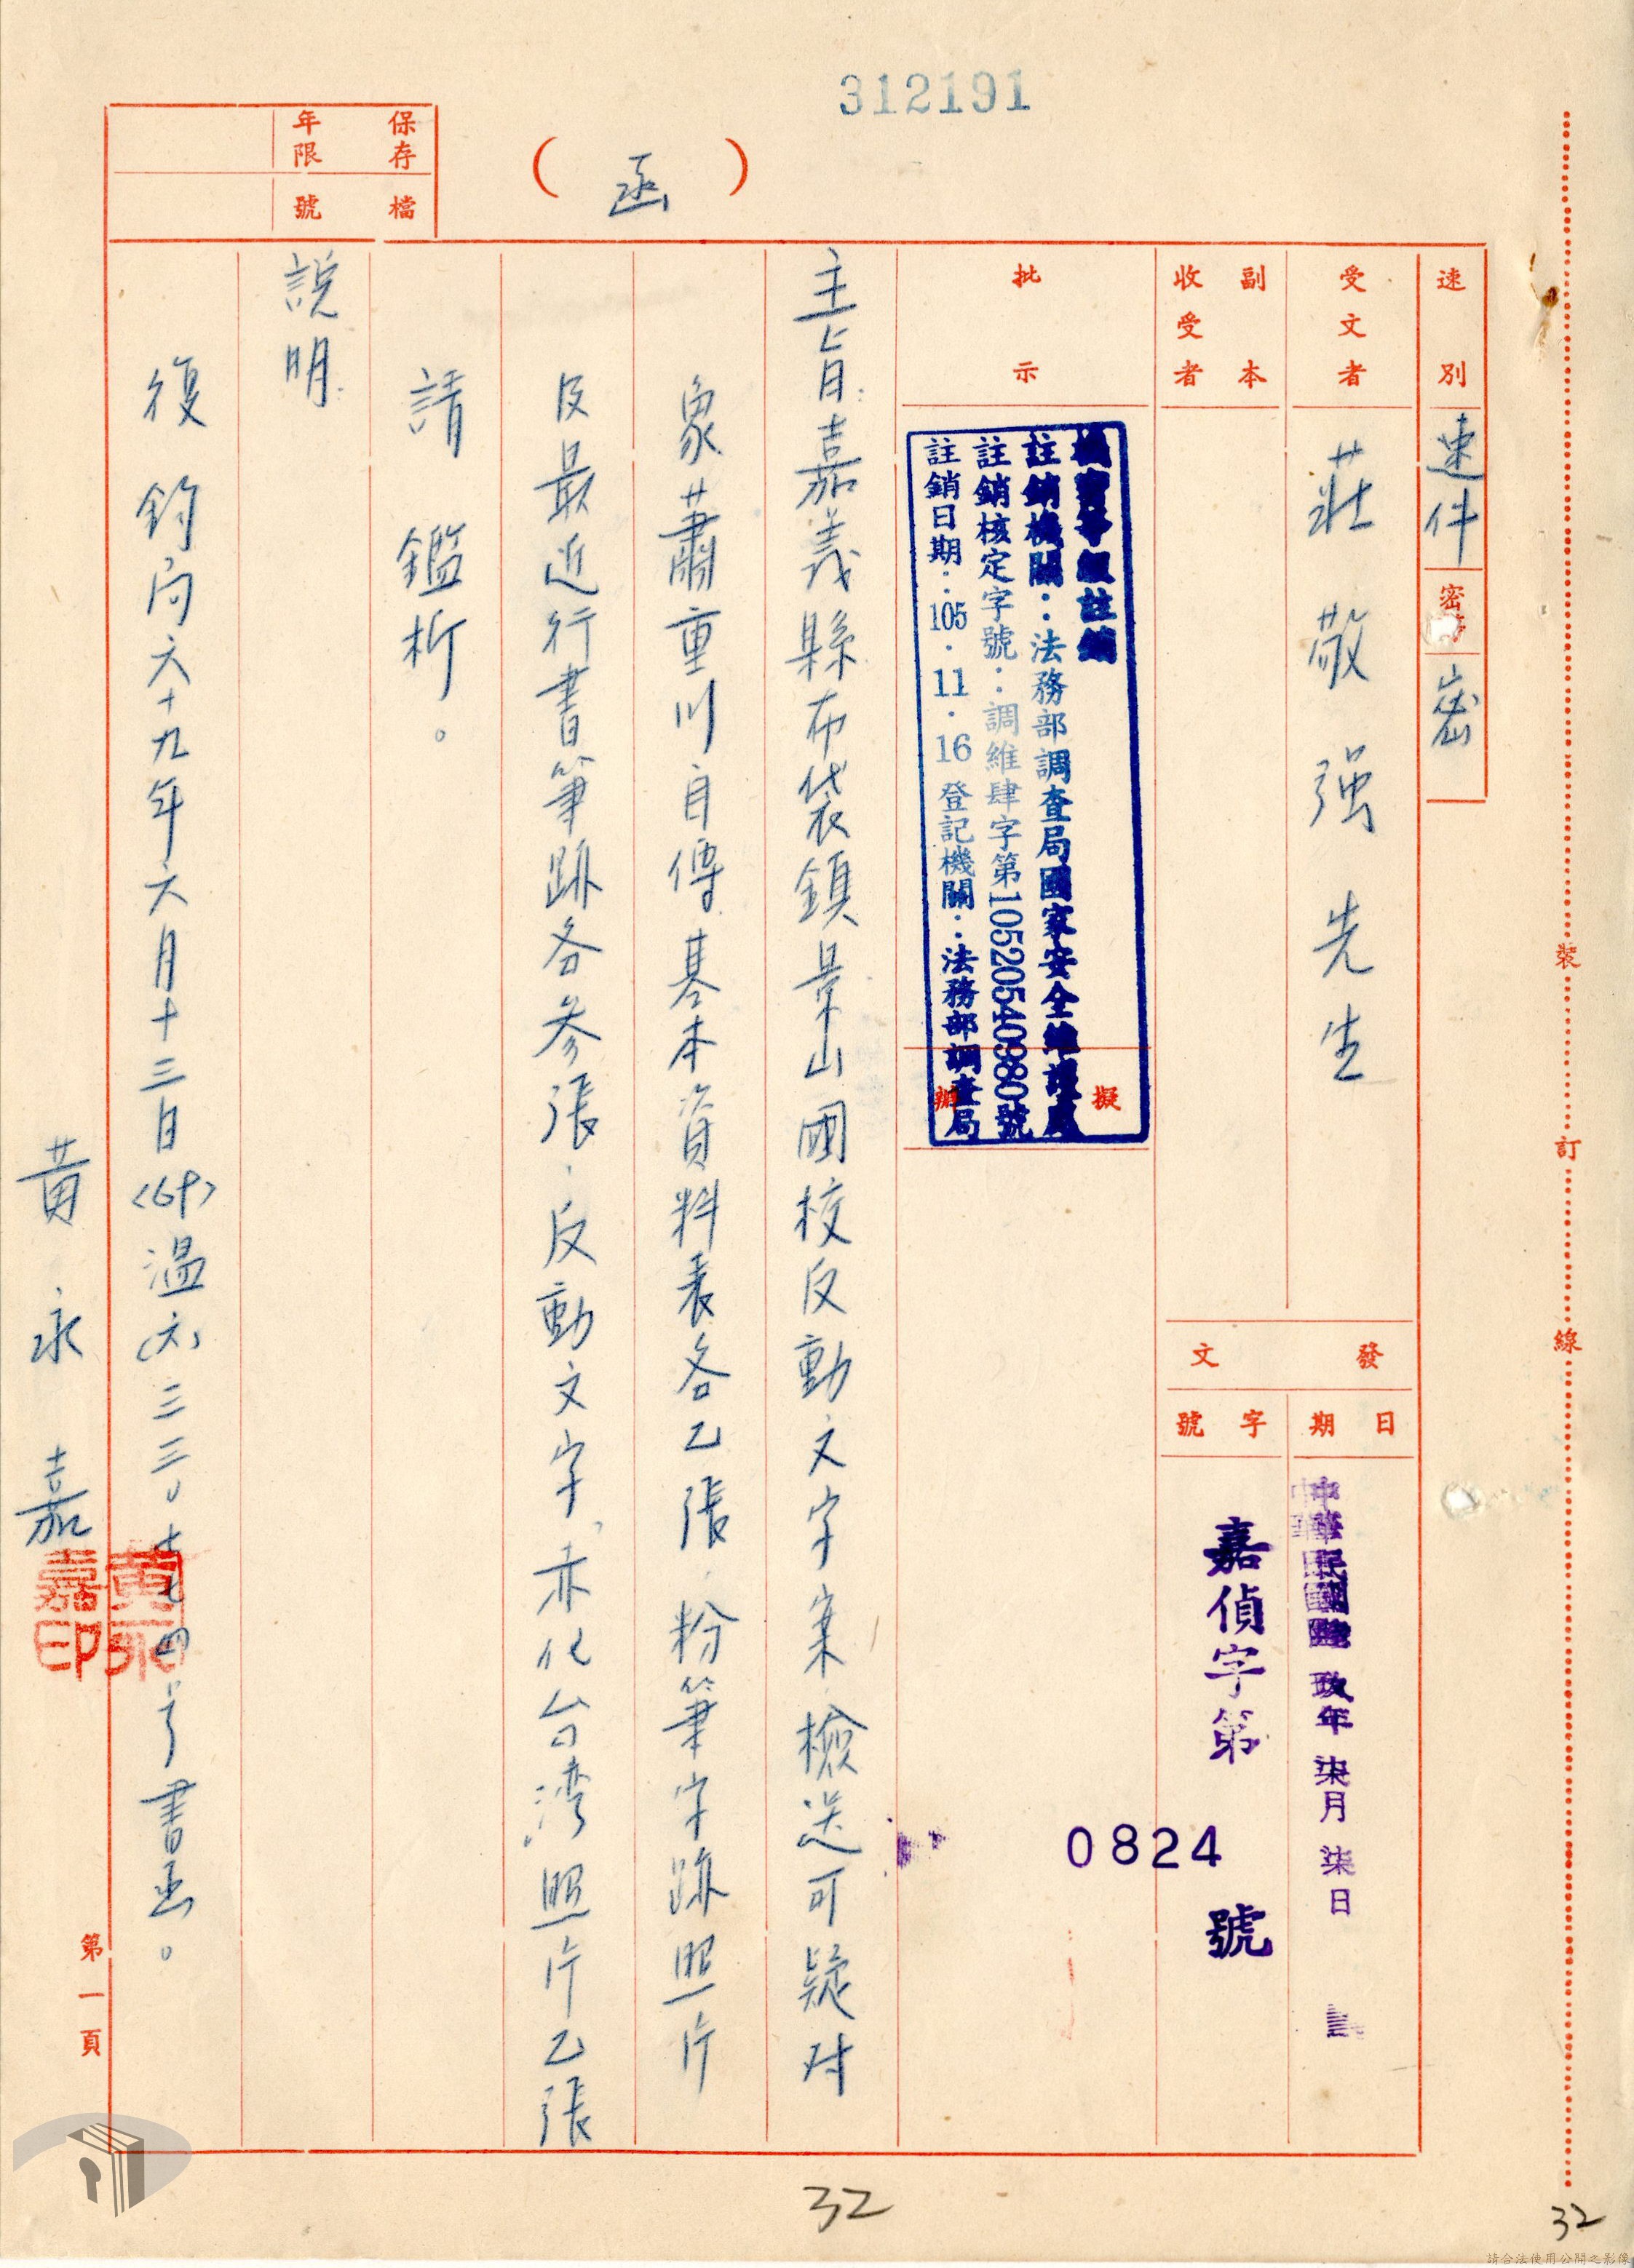 312191
（函）
保存年限
檔號
速別
速件
密等
密
受文者
莊敬强先生
副本收受者
發文
日期
中華民國陸玖年柒月柒日
字號
嘉偵字第0824號
批示
擬辦
機密等級註銷
註銷機關：法務部調查局國家安全維護處
註銷核定字號：調維肆字第10520540980號
註銷日期：105．11．16登記機關：法務部調查局
主旨：嘉義縣布袋鎮景山國校反動文字案，檢送可疑对
象蕭重川自傳基本資料表各乙張，粉筆字跡照片
及最近行書筆跡各參張，反動文字，赤化台湾照片乙張
請鑑析。
說明：
復鈞局六十九年六月十三日(69)溫(六)三三〇七七四号書函。
黃永嘉
黃永嘉印
第一頁
裝訂線
32
32
請合法使用公開之影像